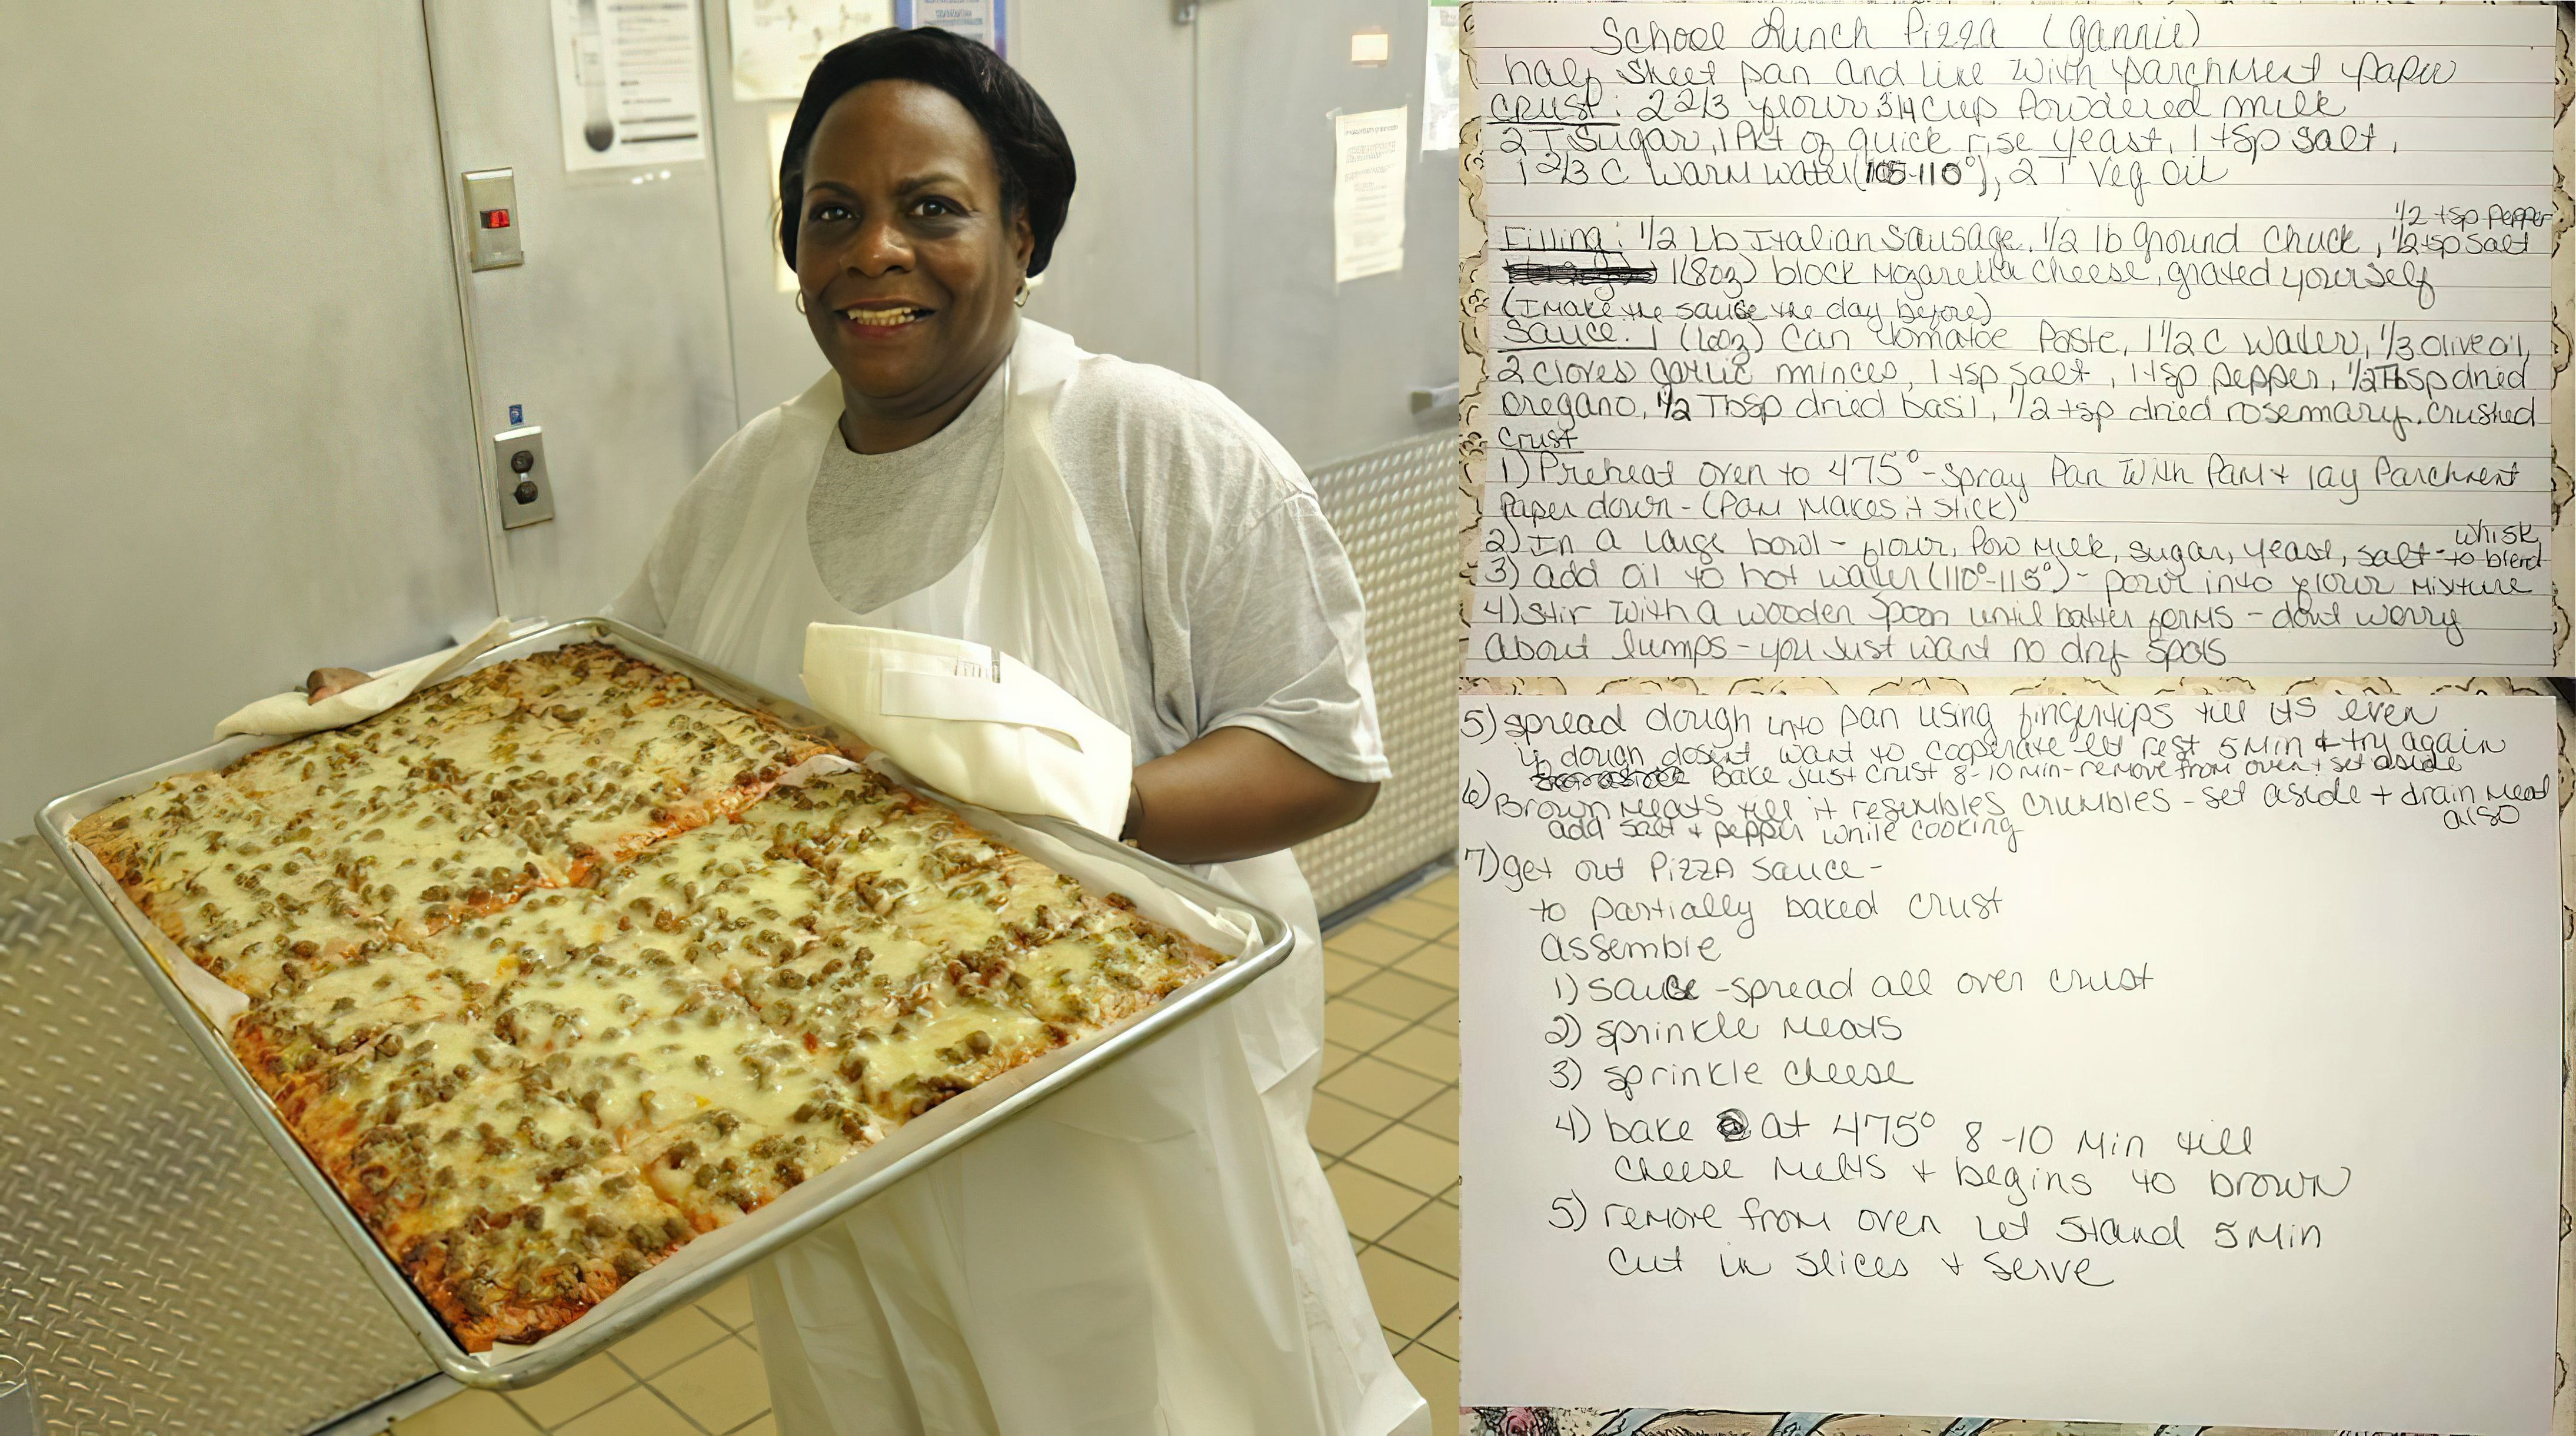 School Lunch Pizza (gannie)
half sheet pan and line with parchment paper
Crust: 2 2/3 flour 3/4 cup Powdered milk
2 T Sugar, 1 Pkt of quick rise yeast, 1 tsp salt,
1 2/3 C warm water (105-110°), 2 T Veg oil
1/2 tsp pepper
Filling: 1/2 Lb Italian Sausage, 1/2 lb ground chuck, 1/2 tsp salt
1 (8oz) block Mozarella cheese, grated yourself
(I make the sauce the day before)
Sauce: 1 (6oz) can tomatoe Paste, 1 1/2 C water, 1/3 olive oil,
2 cloves garlic minces, 1 tsp salt, 1 tsp pepper, 1/2 Tbsp dried
oregano, 1/2 Tbsp dried basil, 1/2 tsp dried rosemary, crushed
Crust
1) Preheat oven to 475° - spray Pan with Pam + lay Parchment
Paper down - (Pam makes it stick)
2) In a large bowl - flour, Pow milk, sugar, yeast, salt - whisk to blend
3) add oil to hot water (110°-115°) - pour into flour mixture
4) Stir with a wooden spoon until batter forms - dont worry
about lumps - you just want no dry spots
5) spread dough into pan using fingertips till its even
if dough dosent want to cooperate let rest 5 min + try again
Bake just crust 8-10 min - remove from oven + set aside
6) Brown meats till it resembles crumbles - set aside + drain meat
add salt + pepper while cooking also
7) get out Pizza sauce -
to partially baked crust
assemble
1) sauce - spread all over crust
2) sprinkle meats
3) sprinkle cheese
4) bake at 475° 8-10 min till
cheese melts + begins to brown
5) remove from oven let stand 5 min
cut in slices + serve